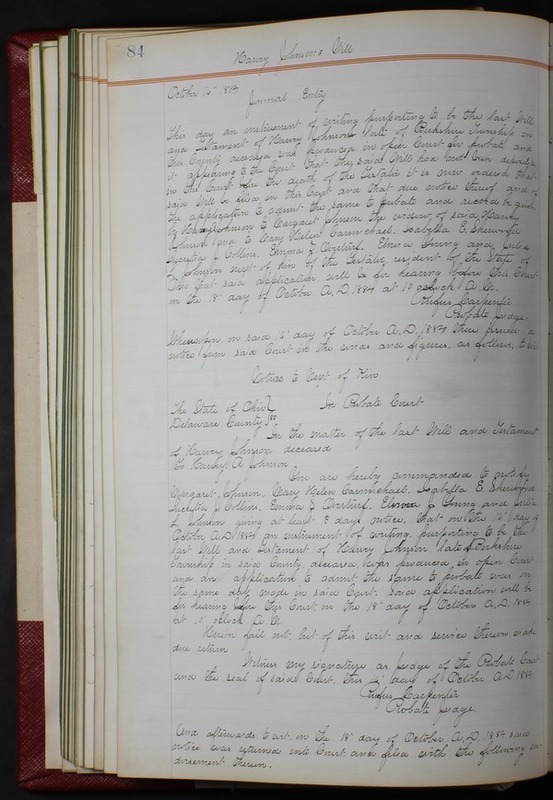 84
Harry Johnson's Will
October 14" 1884
Journal Entry
This day an instrument of writing purporting to be the last Will
and Testament of Harry Johnson late of Berkshire Township in
this County deceased was produced in open Court for probate and
it appearing to the Court that the said Will had not been deposited
in this Court the death of the Testator it is now ordered that
said Will be filed in this Court and that due notice thereof and of
the application to admit the same to probate and record be given
by Johnson to Margaret Johnson the widow of said Harry
Johnson and to Mary Helen Carmichael, Isabella E. Sherwood
Collins, Emma Z. Overturf, Elnora Loving and Julia
L Johnson next of kin of the Testator resident of the State of
Ohio that said application will be for hearing before this Court
on the 18" day of October A.D. 1884 at 10 oclock A.M.
Rufus Carpenter
Probate Judge.
Whereupon on said 14" day of October A.D. 1884 there issued a
notice from said Court in the words and figures, as follows, to wit
Notice to Next of Kin
The State of Ohio } In Probate Court
Delaware County } SS
In the matter of the last Will and Testament
of Harry Johnson deceased
To A Johnson
You are hereby commanded to notify
Margaret Johnson, Mary Helen Carmichael, Isabella E. Sherwood
Collins, Emma Z Overturf, Elnora Loving and Julia
L Johnson giving at least 3 days notice, that on the 14" day of
October A.D. 1884 an instrument of writing purporting to be the
last Will and Testament of Harry Johnson late of Berkshire
Township in said County, deceased, was produced in open Court
and an application to admit the same to probate was on
the same day made in said Court. Said application will be
for hearing before this Court on the 18" day of October A.D. 1884
at 10 oclock A.M.
Herein fail not, but of this writ and service thereon make
due return
Witness my signature as Judge of the Probate Court
and the seal of said Court, this 14" day of October A.D. 1884
Rufus Carpenter
Probate Judge.
And afterwards, to wit, on the 18" day of October A.D. 1884 said
notice was returned into Court and filed with the following en-
dorsement thereon.